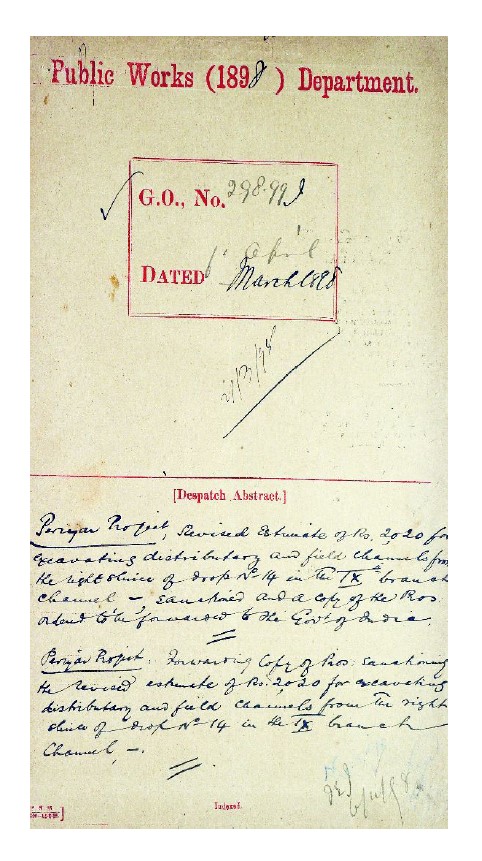 Public Works (1898) Department.
G.O., No. 298-99 I
April
DATED 6 March 1898
[Despatch Abstract.]
Periyar Project, Revised Estimate of Rs. 2,020 for
excavating distributary and field channels from
the right sluice of drop No 14 in the IX branch
Channel –, Sanctioned and a Copy of the Pros
ordered to be forwarded to the Govt of India.
Periyar Project. Forwarding Copy of Pros: Sanctioning
the revised estimate of Rs. 2,020 for excavating
distributary and field channels from the right
sluice of drop No 14 in the IX branch
Channel –.
Indexed.